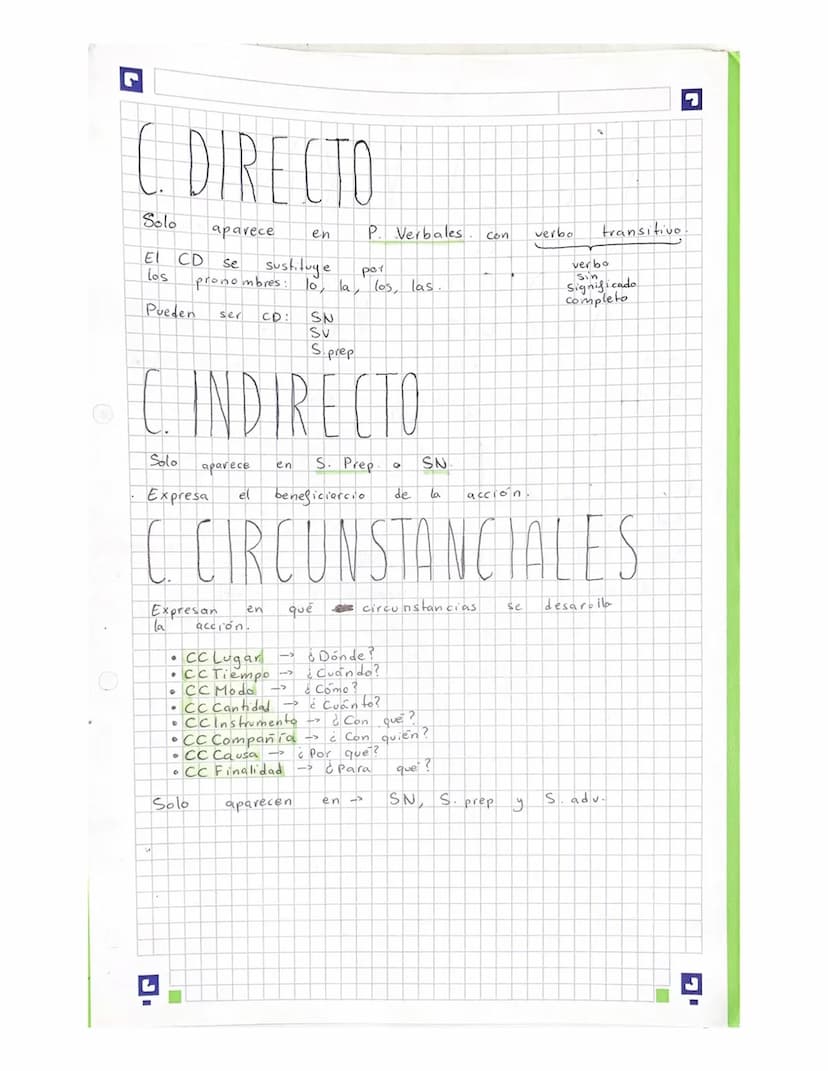 C. DIRECTO
Solo aparece en P. Verbales. con verbo transitivo.
El CD se sustituye por
los pronombres: lo, la, los, las.
verbo
sin
significado
completo
Pueden ser CD: SN
SV
S. prep
C. INDIRECTO
Solo aparece en S. Prep. o SN.
. Expresa el beneficiarcio de la acción.
C. CIRCUNSTANCIALES
Expresan en qué circunstancias se desarolla
la acción.
• CC Lugar -> ¿Dónde?
• CC Tiempo -> ¿Cuándo?
• CC Modo -> ¿Cómo?
• CC Cantidad -> ¿Cuánto?
• CC Instrumento -> ¿Con qué?
• CC Compañía -> ¿Con quién?
• CC Causa -> ¿Por qué?
• CC Finalidad -> ¿Para qué?
Solo aparecen en -> SN, S. prep y S. adv.